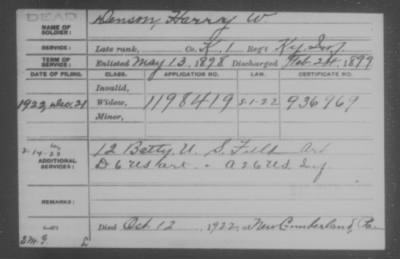 DEAD
NAME OF SOLDIER: Denson, Harry W
SERVICE: Late rank, Co. K, 1 Reg't Ky Inf
TERM OF SERVICE: Enlisted May 13, 1898 Discharged Feb. 24, 1899
DATE OF FILING. CLASS. APPLICATION NO. LAW. CERTIFICATE NO.
Invalid,
1922, Dec. 21 Widow, 1198419 5-1-22 936969
Minor,
2-14-23
ADDITIONAL SERVICES: 12 Batty. U. S. Field Art
D 6 US Art. - A 26 U.S. Inf
REMARKS:
Died Oct. 12, 1922, at New Cumberland, Pa